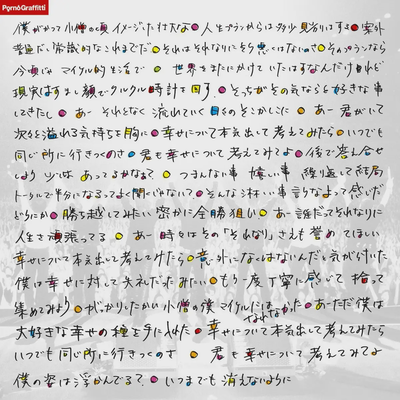 PornoGraffitti
僕がかつて小僧の頃イメージした壮大な●人生プランからは多少見劣りはする●案外
普通だし常識的なこれまでだ●それはそれなりにそう悪くはないのさ●そのプランなら
今頃じゃマイケル的生活で●世界をまたにかけていたはずなんだけれど
現実はすまし顔でクルクル時計を回す●そっちがその気ならと好きな事
してきたし●あーそれとなく流れていく日々のそこかしこに●あー君がいて
次々溢れる気持ちを胸に●幸せについて本気出して考えてみたら●いつでも
同じ所に行きつくのさ●君も幸せについて考えてみてよ●後で答え合せ
しよう少しは●あってるかなぁ?●つまんない事嬉しい事繰り返して結局
トータルで半分になるってよく聞くじゃない?●そんな淋しい事言うなよって感じだ
どうにか●勝ち越してみたい密かに全勝狙い●あー誰だってそれなりに
人生を頑張ってる●あー時々はその「それなり」さえも誉めてほしい
幸せについて本気出して考えてみたら●意外になくはないんだと気が付いた
僕は幸せに対して失礼だったみたい●もう一度丁寧に感じて拾って
集めてみよう●がっかりしたかい小僧の僕マイケルにはなれなかった●あーただ僕は
大好きな幸せの種を手に入れた●幸せについて本気出して考えてみたら
いつでも同じ所に行きつくのさ●君も幸せについて考えてみてよ
僕の姿は浮かんでる?●いつまでも消えないように